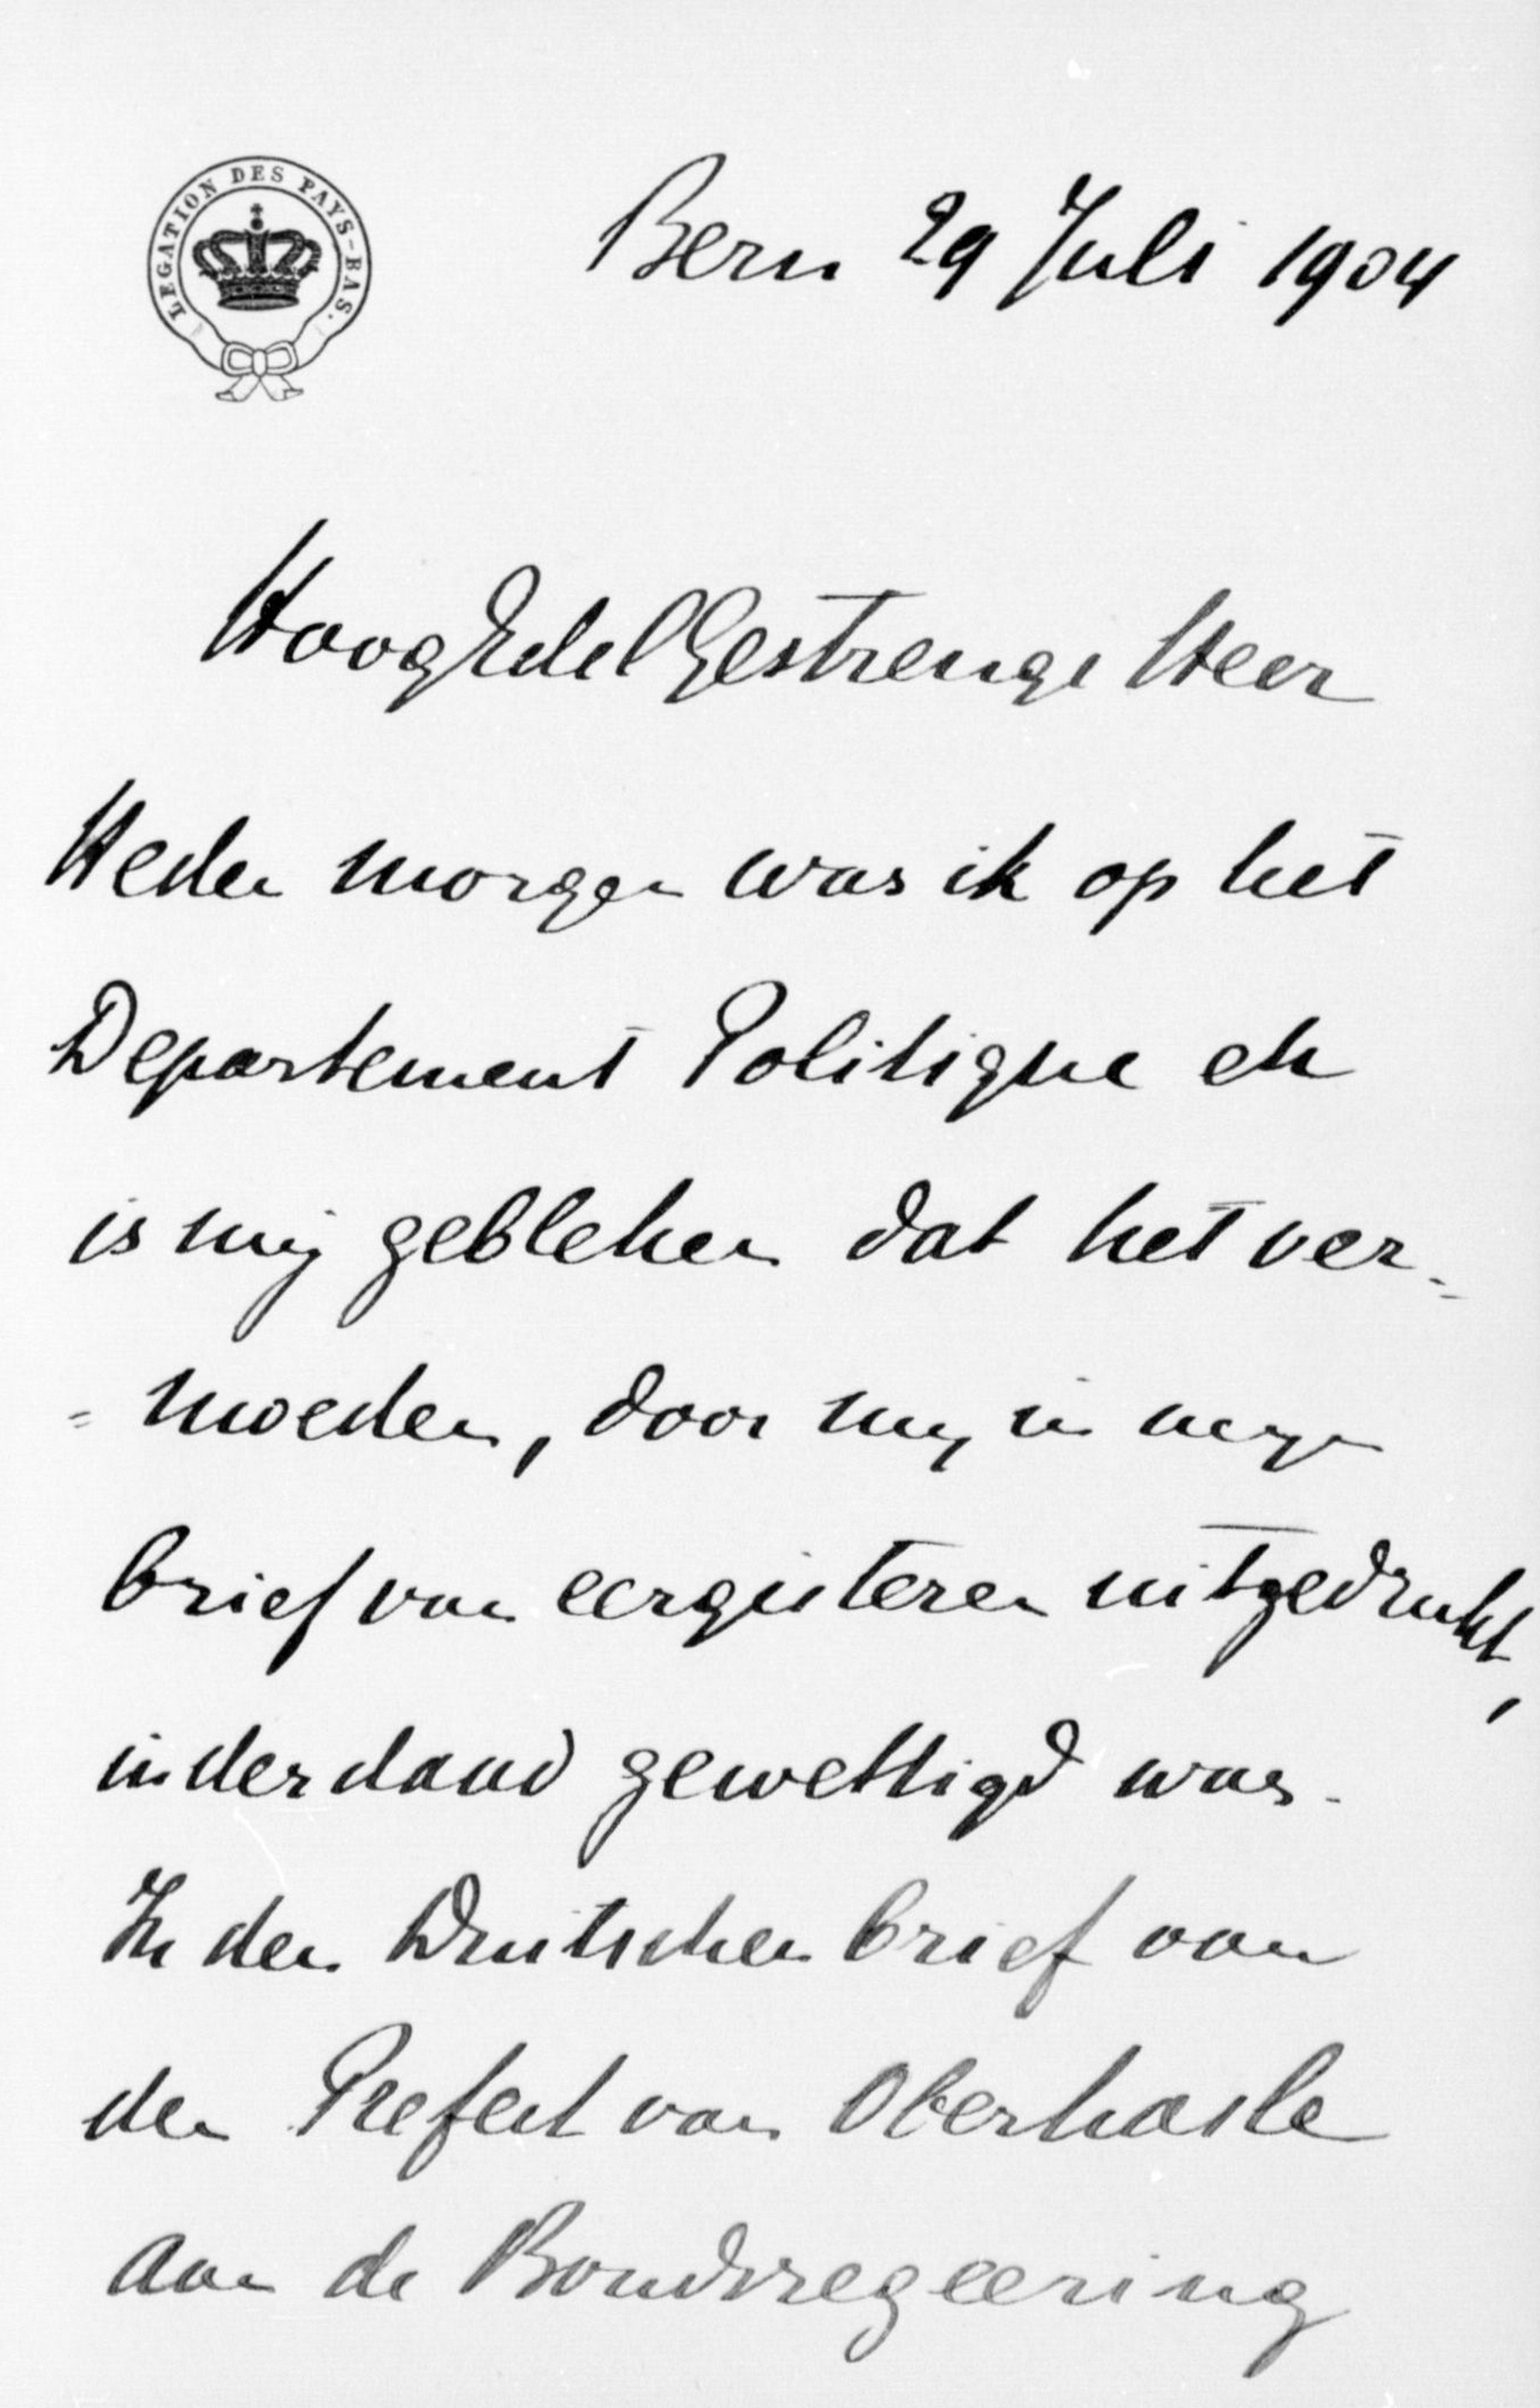 LEGATION DES PAYS-BAS.
Bern 29 Juli 1904
HoogEdelGestrenge Heer
Heden morgen was ik op het
Departement Politique en
is mij gebleken dat het ver=
=moeden, door mij in mijn
brief van eergisteren uitgedrukt,
inderdaad gewettigd was.
In den Duitschen brief van
den Prefect van Oberhasle
aan de Bondsregeering